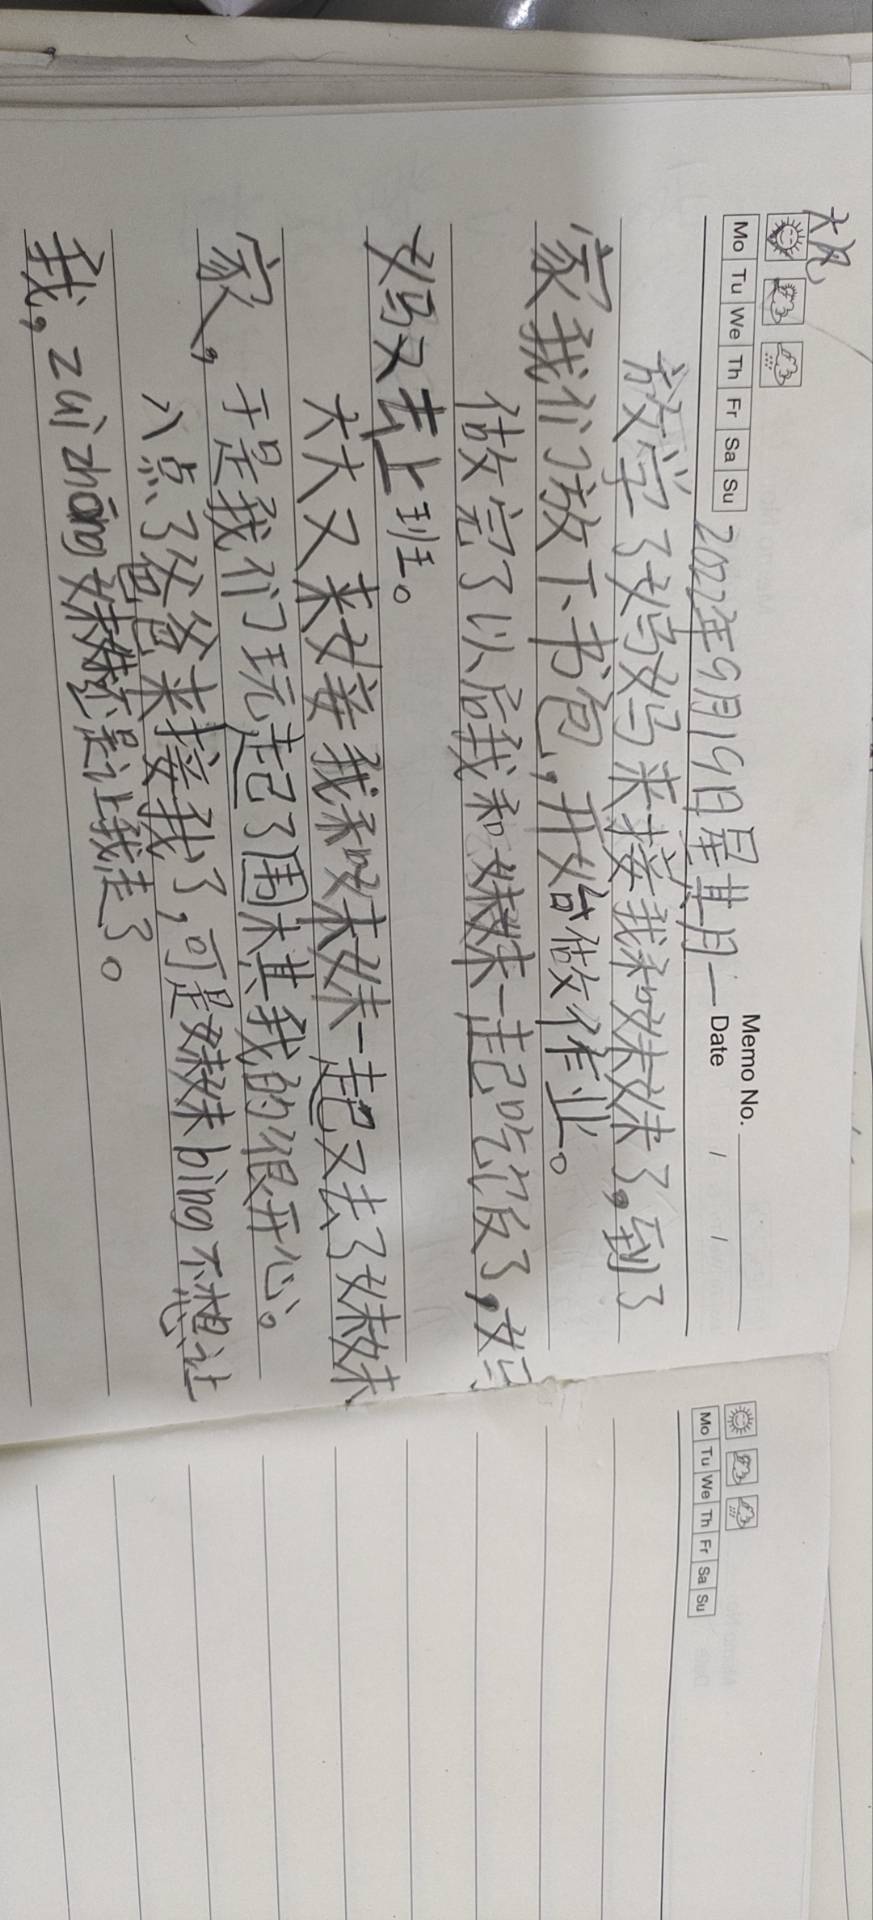 大风
Memo No.
Mo Tu We Th Fr Sa Su 2022年9月19日星其月一 Date / /
放学了妈妈来接我和妹妹了,到了
家我们放下书包,开始做作业。
做完了以后我和妹妹一起吃饭了,妈
妈又去上班。
大大又来接我和妹妹一起又去了妹妹
家,于是我们玩起了围棋我的很开心。
八点了爸爸来接我了,可是妹妹bìng不想让
我,zuì zhōng妹妹还是让我走了。
Mo Tu We Th Fr Sa Su